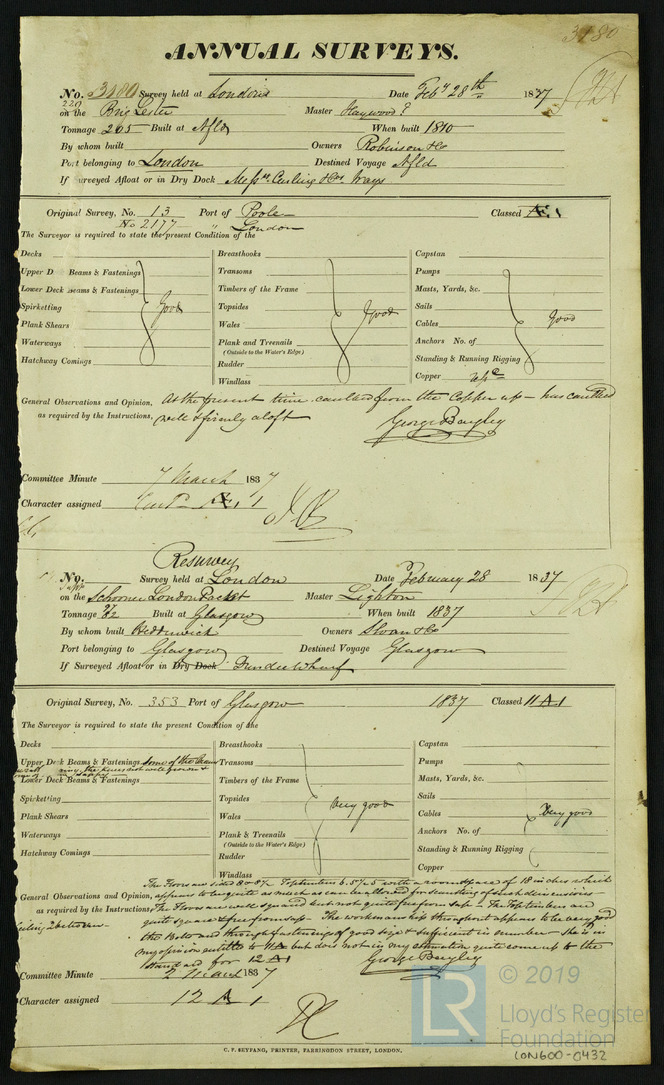 3180
ANNUAL SURVEYS.
No. 3180 Survey held at London Date Feby 28th 1837
220
on the Brig Lester Master Haywood?
Tonnage 205 Built at Nfld When built 1810
By whom built Owners Robinson & Co
Port belonging to London Destined Voyage Nfld
If Surveyed Afloat or in Dry Dock Messrs Curling & Co Ways
Original Survey, No. 13 Port of Poole Classed Æ1
No 2177 " London
The Surveyor is required to state the present Condition of the
Decks
Upper D Beams & Fastenings
Lower Deck Beams & Fastenings
Spirketting
Plank Shears
Waterways
Hatchway Comings
Good
Breasthooks
Transoms
Timbers of the Frame
Topsides
Wales
Plank and Treenails
(Outside to the Water's Edge)
Rudder
Windlass
Good
Capstan
Pumps
Masts, Yards, &c.
Sails
Cables
Anchors No. of
Standing & Running Rigging
Copper
Good
General Observations and Opinion, At the present time caulked from the Copper up – has caulked
as required by the Instructions, well & firmly aloft George Bayley
Committee Minute 7 March 1837
Character assigned Æ 1
Resurvey
No. Survey held at London Date February 28 1837
on the Schooner London Packet Master Lighton
Tonnage Built at Glasgow When built 1837
By whom built Owners Sloan & Co
Port belonging to Glasgow Destined Voyage Glasgow
If Surveyed Afloat or in Dry Dock Dundee Wharf
Original Survey, No. 353 Port of Glasgow 1837 Classed 11 A 1
The Surveyor is required to state the present Condition of the
Decks
Upper Deck Beams & Fastenings Some of the Beams
Lower Deck Beams & Fastenings
Spirketting
Plank Shears
Waterways
Hatchway Comings
Breasthooks
Transoms
Timbers of the Frame
Topsides
Wales
Plank & Treenails
(Outside to the Water's Edge)
Rudder
Windlass
Very good
Capstan
Pumps
Masts, Yards, &c.
Sails
Cables
Anchors No. of
Standing & Running Rigging
Copper
Very good
The Floors are sided 8 a 8½ Foptimbers with a room & space of 18 inches which
General Observations and Opinion, appears to be quite as much as can be allowed for scantling of such dimensions
as required by the Instructions, The Floors are well squared but not quite free from sap – The Toptimbers are
quite square & free from sap – The workmanship throughout appears to be very good
the Bolts and through fastenings of good size & sufficient in number – She is in
my opinion entitled to 11 A but does not in my estimation quite come up to the
standard for 12 A 1 George Bayley
Committee Minute 2 March 1837
Character assigned 12 A 1
C. F. SEYFANG, PRINTER, FARRINGDON STREET, LONDON.
LR
© 2019
Lloyd's Register
Foundation
LON600-0432